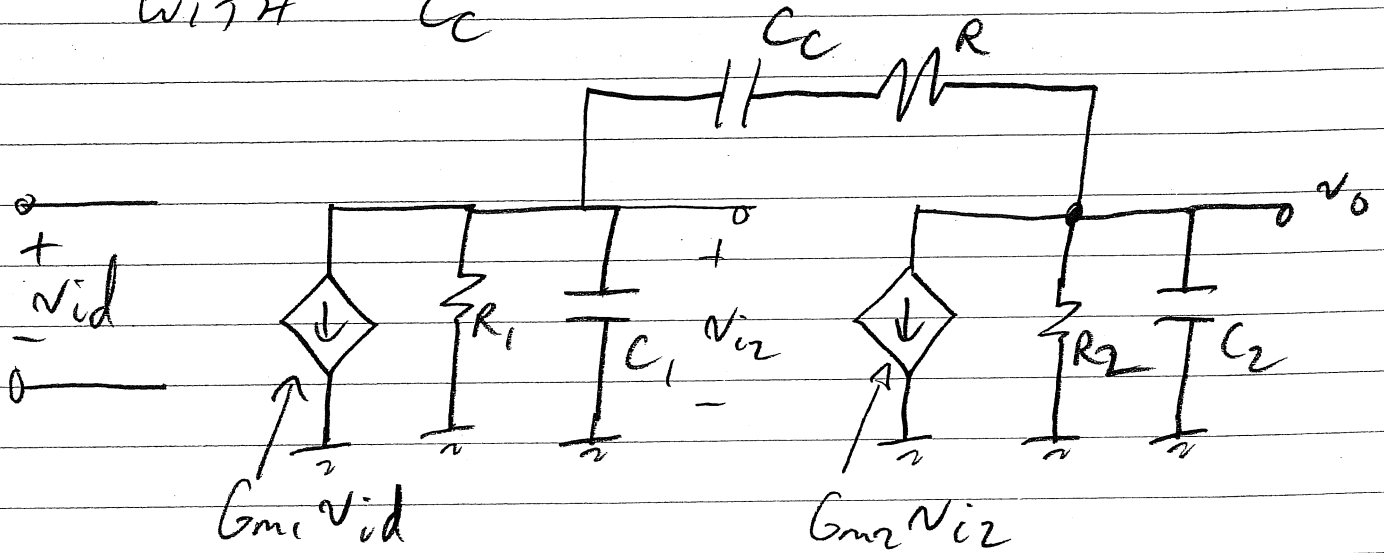 WITH Cc
Cc R
vo
+
vid
-
R1
C1
+
vi2
-
R2
C2
Gm1 vid
Gm2 vi2